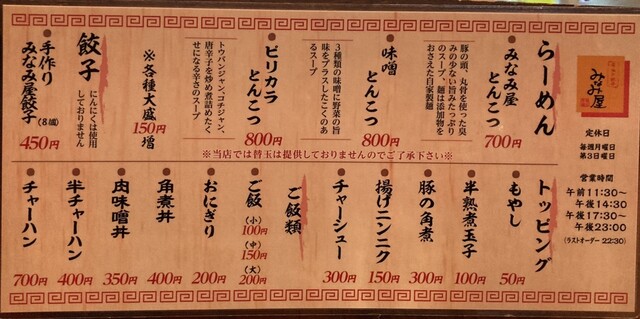 みなみ屋
定休日
毎週月曜日
第3日曜日
営業時間
午前11:30～
午後14:30
午後17:30～
午後23:00
(ラストオーダー 22:30)
らーめん
みなみ屋
とんこつ
700円
豚の頭、丸骨を使った臭
みの少ない旨みたっぷり
のスープ、麺は添加物を
おさえた自家製麺
味噌
とんこつ
800円
3種類の味噌に野菜の旨
味をプラスしたこくのあ
るスープ
ピリカラ
とんこつ
800円
トウバンジャン、コチジャン、
唐辛子を炒め煮詰めたく
せになる辛さのスープ
※各種大盛
150円増
餃子
にんにくは使用
しておりません
手作り
みなみ屋餃子(8個)
450円
※当店では替玉は提供しておりませんのでご了承下さい※
トッピング
もやし
50円
半熟煮玉子
100円
豚の角煮
300円
揚げニンニク
150円
チャーシュー
300円
ご飯類
ご飯
(小)
100円
(中)
150円
(大)
200円
おにぎり
200円
角煮丼
400円
肉味噌丼
350円
半チャーハン
400円
チャーハン
700円